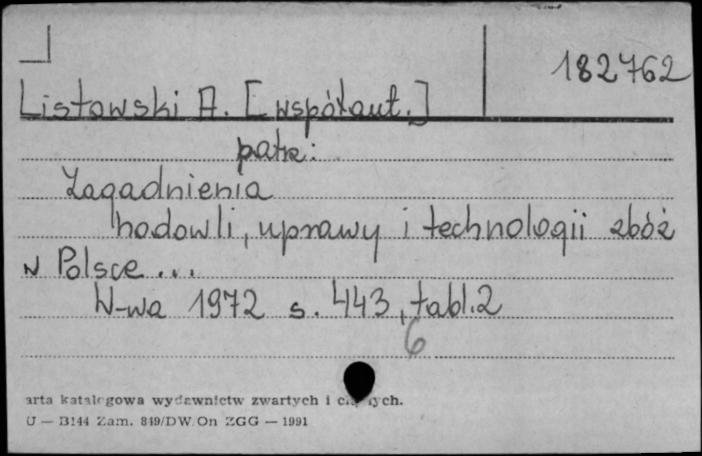 182762
Listowski A. [współaut.]
patrz:
Zagadnienia
hodowli, uprawy i technologii zbóż
w Polsce...
W-wa 1972 s. 443, tabl. 2
6
arta katalogowa wydawnictw zwartych i ciągłych.
U — B144 Zam. 849/DW/On ZGG — 1991